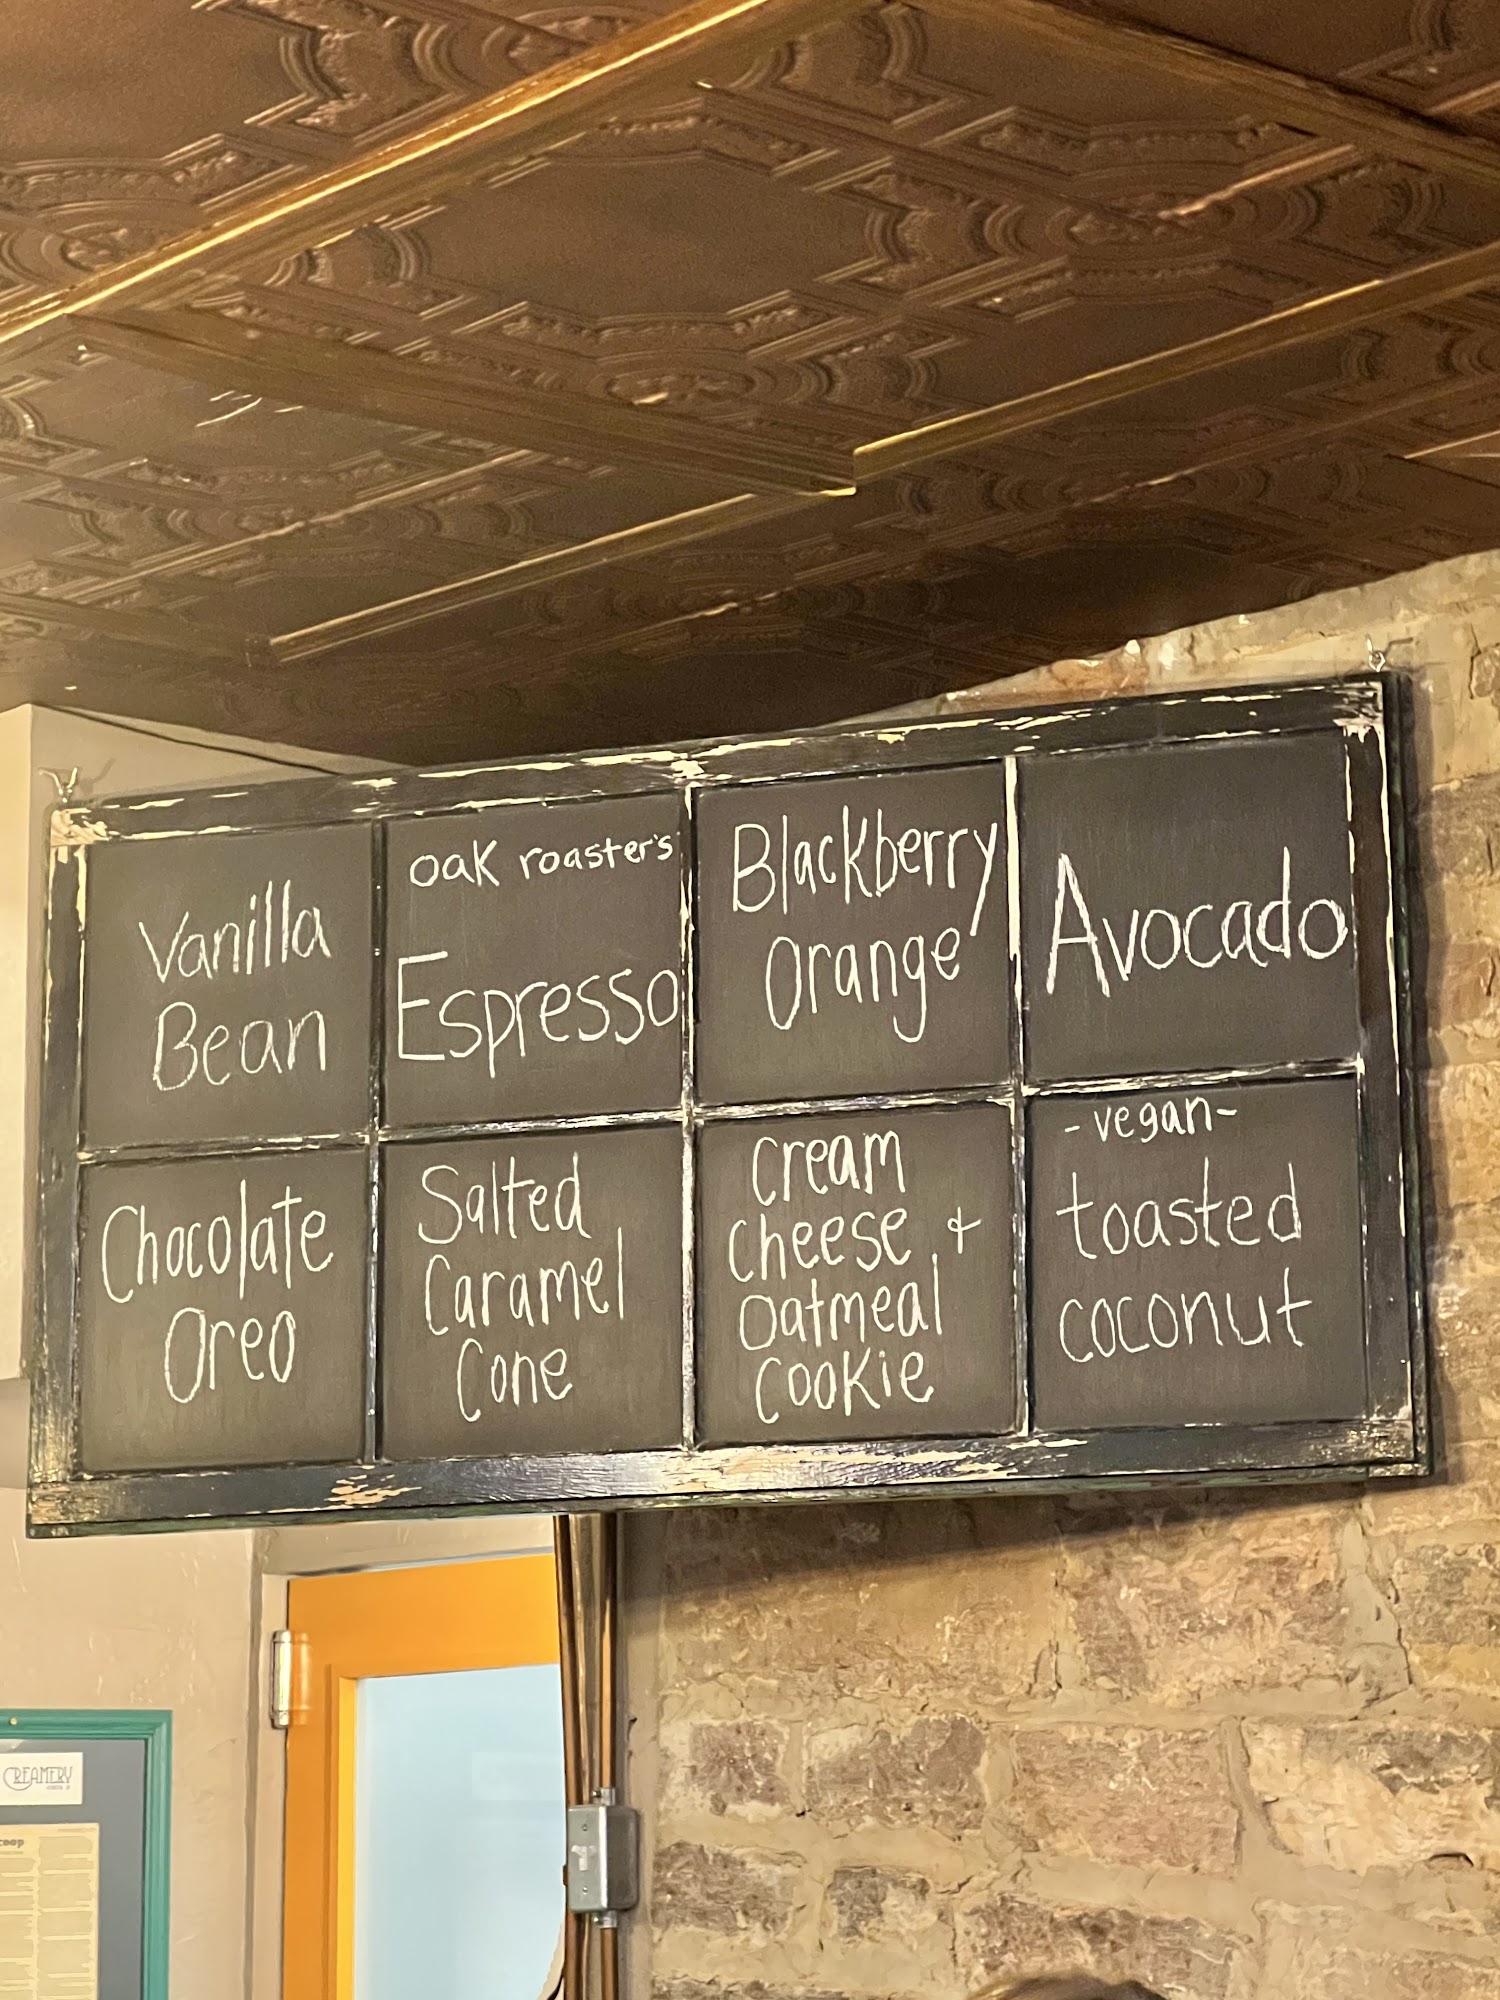 Vanilla
Bean
oak roaster's
Espresso
Blackberry
Orange
Avocado
Chocolate
Oreo
Salted
Caramel
Cone
cream
cheese +
oatmeal
cookie
-vegan-
toasted
coconut
CREAMERY
coop